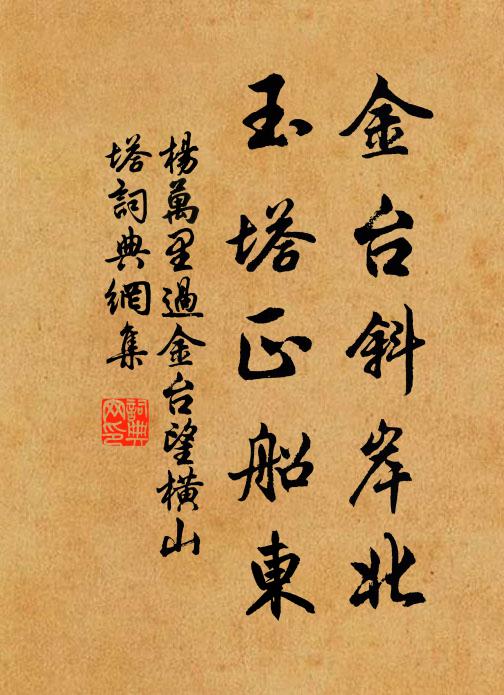 金台斜岸北
玉塔正船東
楊萬里過金台望橫山
塔詞典網集
詞典網印